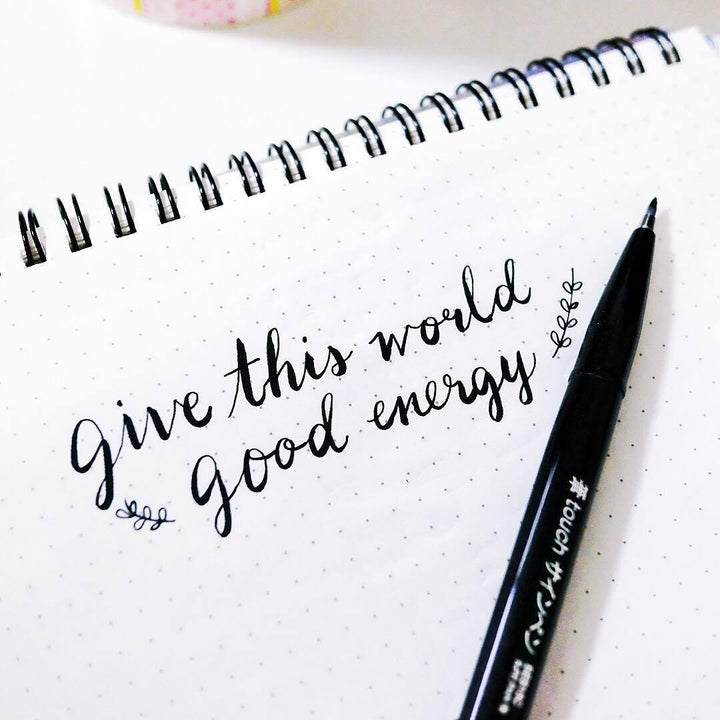 give this world
good energy
筆touchサインペン